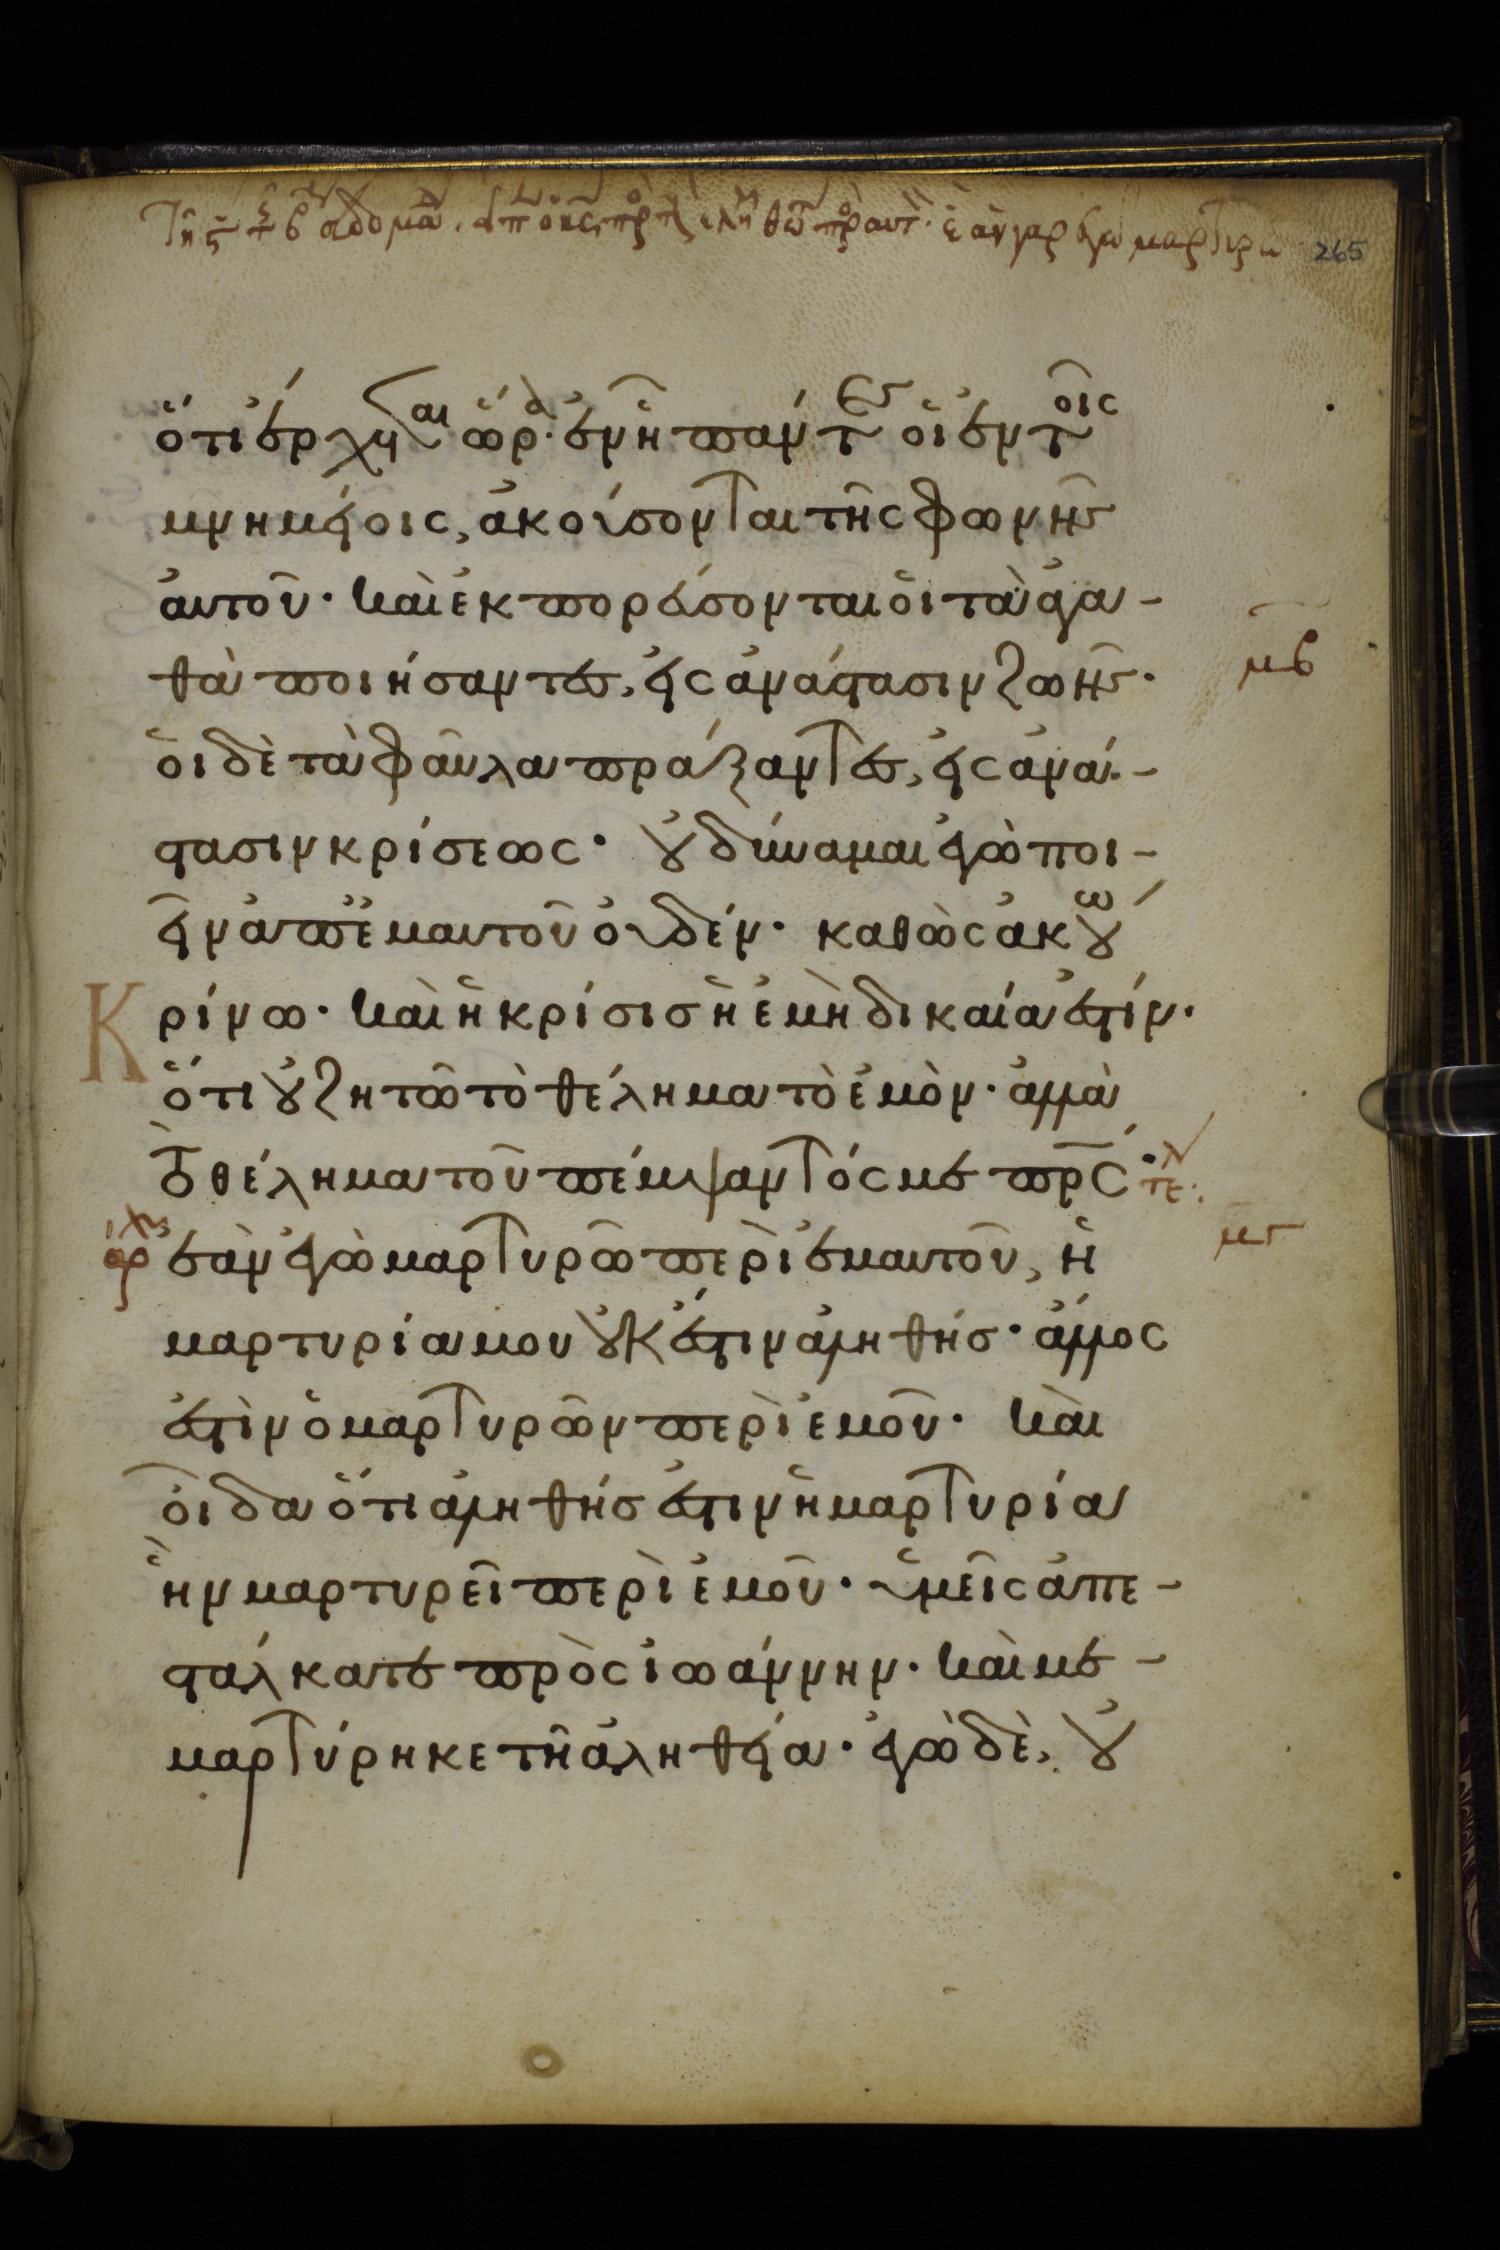 265
ὅτι ἔρχεται ὥρα· ἐν ᾗ πάντες οἱ ἐν τοῖς
μνημείοις, ἀκούσονται τῆς φωνῆς
αὐτοῦ· καὶ ἐκπορεύσονται οἱ τὰ ἀγα-
θὰ ποιήσαντες, εἰς ἀνάστασιν ζωῆς·
μβ
οἱ δὲ τὰ φαῦλα πράξαντες, εἰς ἀνά-
στασιν κρίσεως· οὐ δύναμαι ἐγὼ ποι-
εῖν ἀπ' ἐμαυτοῦ οὐδέν· καθὼς ἀκούω
κρίνω· καὶ ἡ κρίσις ἡ ἐμὴ δικαία ἐστίν·
ὅτι οὐ ζητῶ τὸ θέλημα τὸ ἐμὸν· ἀλλὰ
τὸ θέλημα τοῦ πέμψαντός με πρς·
τε·
μγ
ἐὰν ἐγὼ μαρτυρῶ περὶ ἐμαυτοῦ, ἡ
μαρτυρία μου οὐκ ἔστιν ἀληθής· ἄλλος
ἐστὶν ὁ μαρτυρῶν περὶ ἐμοῦ· καὶ
οἶδα ὅτι ἀληθής ἐστιν ἡ μαρτυρία
ἣν μαρτυρεῖ περὶ ἐμοῦ· ὑμεῖς ἀπε-
στάλκατε πρὸς ἰωάννην· καὶ με-
μαρτύρηκε τῆ ἀληθεία· ἐγὼ δὲ, οὐ